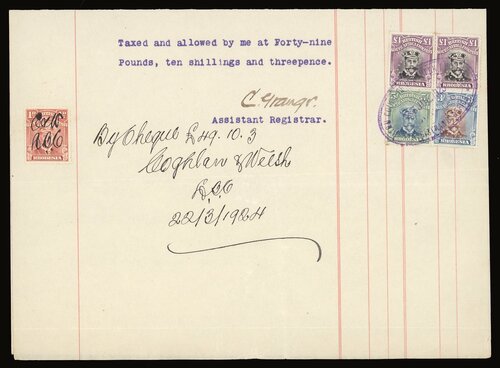 Taxed and allowed by me at Forty-nine
Pounds, ten shillings and threepence.
Assistant Registrar.
By Cheque £49.10.3
Coghlan & Welsh
22/3/1924
C & W
RHODESIA
£1 £1
RHODESIA RHODESIA